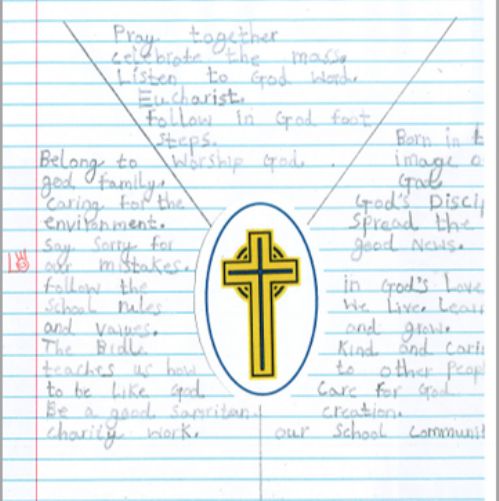 Pray together
celebrate the mass.
Listen to God word.
Eucharist.
Follow in God foot
steps.
Worship God.
Belong to
god family.
Caring for the
environment.
Say Sorry for
our mistakes.
follow the
School rules
and values.
The Bible
teaches us how
to be Like God
Be a good Samritan.
charity work.
Born in t
image o
God's Discip
Spread the
good News.
in God's Love
We Live. Lear
and grow.
Kind and Cari
to other Peop
Care for God
creation.
our School Communit